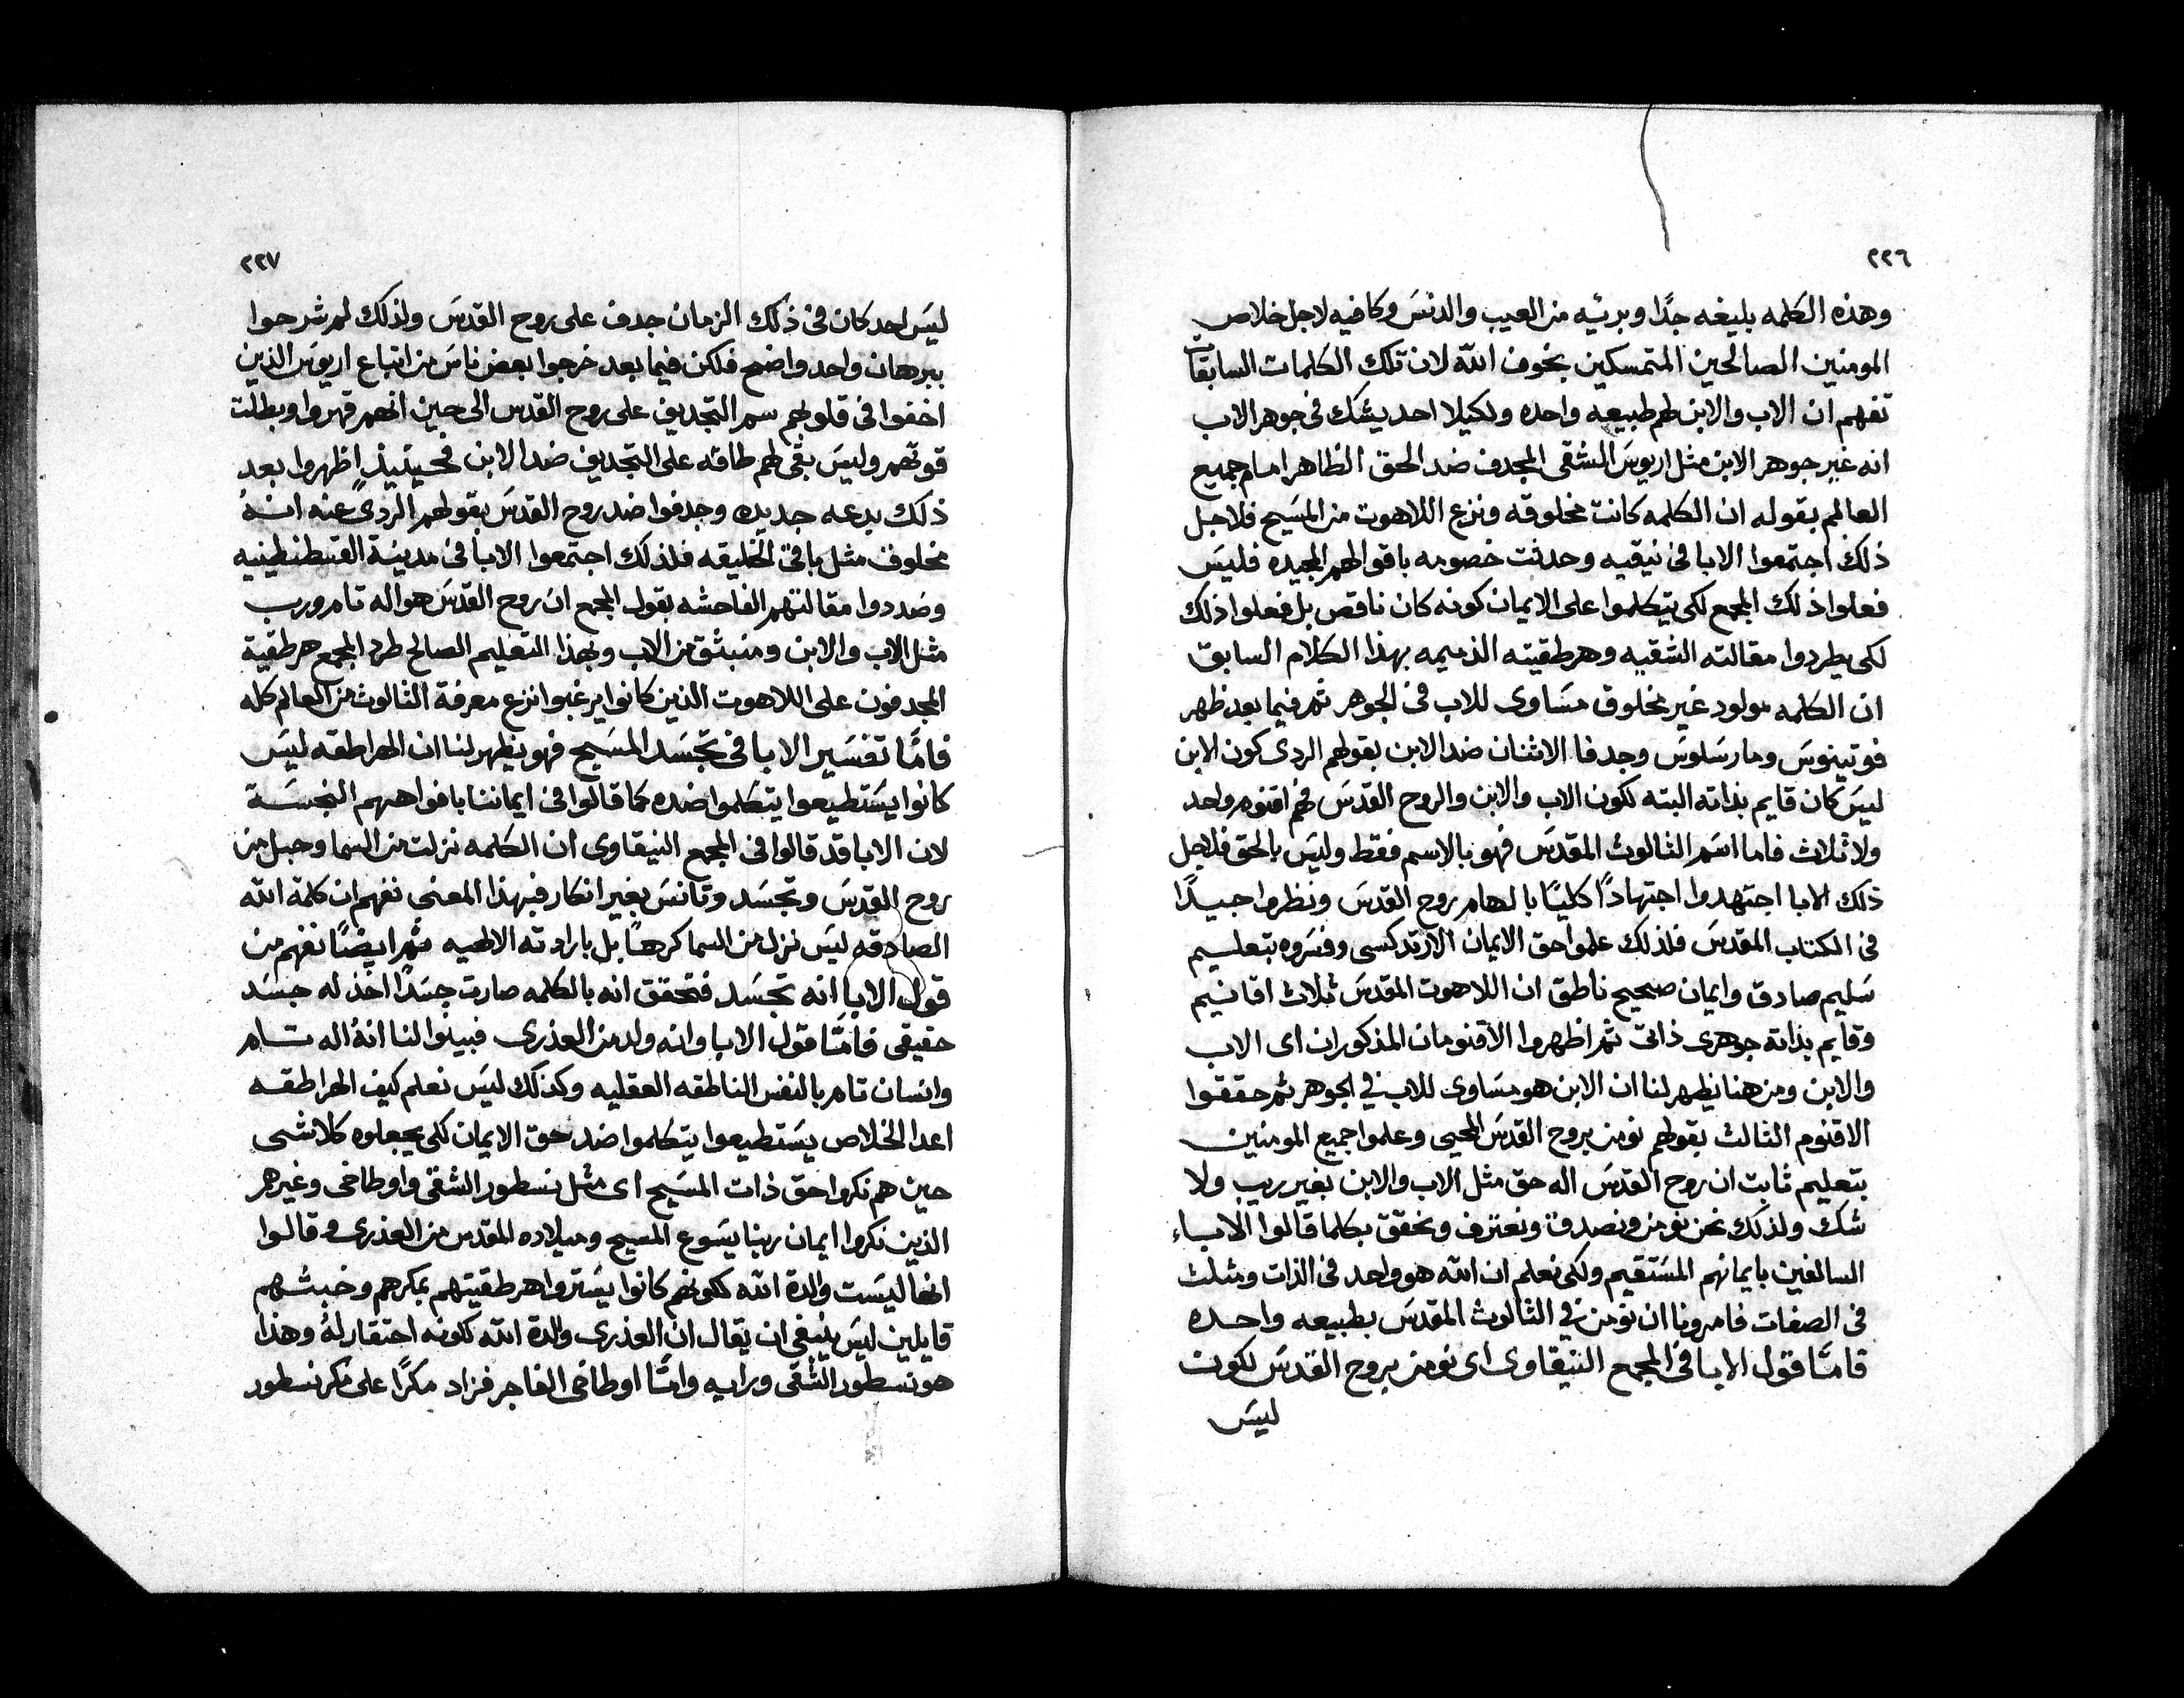 ٢٢٦
وهذه الكلمه بليغه جدًا وبرئيه من العيب والدنس وكافيه لاجل خلاص
المومنين الصالحين المتمسكين بخوف الله لان تلك الكلمات السابقات
تفهم ان الاب والابن لهم طبيعه واحده ولكيلا احد يشك في جوهر الاب
انه غير جوهر الابن مثل اريوس الشقى المجدف ضد الحق الظاهر امام جميع
العالم بقوله ان الكلمه كانت مخلوقه ونزع اللاهوت من المسيح فلاجل
ذلك اجتمعوا الابا فى نيقيه وحدثت خصومه باقوالهم المجيده فليس
فعلوا ذلك المجمع لكى يتكلموا على الايمان كونه كان ناقص بل فعلوا ذلك
لكى يطردوا مقالته الشقيه وهرطقيته الذميمه بهذا الكلام السابق
ان الكلمه مولود غير مخلوق مساوى للاب فى الجوهر ثم فيما بعد ظهر
فوتينوس ومارسلوس وجدفا الاثنان ضد الابن بقولهم الردى كون الابن
ليس كان قايم بذاته البته لكون الاب والابن والروح القدس فهم اقنوم واحد
ولا ثلاث فاما اسم الثالوث المقدس فهو بالاسم فقط وليس بالحق فلاجل
ذلك الابا اجتهدوا اجتهادًا كليًا بالهام روح القدس ونظروا جيدًا
فى الكتاب المقدس فلذلك علموا حق الايمان الارتدكسى وفسروه بتعليم
سليم صادق وايمان صحيح ناطق ان اللاهوت المقدس ثلاث اقانيم
وقايم بذاته جوهرى ذاتى ثم اظهروا الاقنومان المذكوران اى الاب
والابن ومن هنا يظهر لنا ان الابن هو مساوى للاب في الجوهر ثم حققوا
الاقنوم الثالث بقولهم نومن بروح القدس المحيى وعلموا جميع المومنين
بتعليم ثابت ان روح القدس اله حق مثل الاب والابن بغير ريب ولا
شك ولذلك نحن نومن ونصدق ونعترف ونحقق بكلما قالوا الاباء
السالفين بايمانهم المستقيم ولكى نعلم ان الله هو واحد فى الذات ومثلث
فى الصفات فامرونا ان نومن في الثالوث المقدس بطبيعه واحده
فامّا قول الابا فى المجمع النيقاوى اى نومن بروح القدس لكون
ليس
٢٢٧
ليس احد كان فى ذلك الزمان جدف على روح القدس ولذلك لم شرحوا
ببرهان واحد واضح فلكن فيما بعد خرجوا بعض ناس من اتباع اريوس الذين
اخفوا فى قلوبهم سم التجديف على روح القدس الى حين انهم قهروا وبطلت
قوتهم وليس بقى لهم طاقه على التجديف ضد الابن فحينيذٍ اظهروا بعد
ذلك بدعه جديده وجدفوا ضد روح القدس بقولهم الردى عنه انهُ
مخلوق مثل باقى الخليقه فلذلك اجتمعوا الابا فى مدينة القسطنطينيه
وضددوا مقالتهم الفاحشه بقول المجمع ان روح القدس هو اله تام ورب
مثل الاب والابن ومنبثق من الاب وبهذا التعليم الصالح طرد المجمع هرطقية
المجدفون على اللاهوت الذين كانوا يرغبوا نزع معرفة الثالوث من العالم كله
فامّا تفسير الابا فى تجسد المسيح فهو يظهر لنا ان الهراطقه ليس
كانوا يستطيعوا يتكلموا ضده كما قالوا فى ايماننا بافواههم النجسة
لان الابا قد قالوا فى المجمع النيقاوى ان الكلمه نزلت من السما وحبل من
روح القدس وتجسد وتانس بغير انكار فبهذا المعنى نفهم ان كلمة الله
الصادقه ليس نزل من السما كرهًا بل بارادته الالهيه ثم ايضًا نفهم من
قول الابا انه تجسد فتحقق انه بالكلمه صارت جسدًا اخذ له جسد
حقيقى فامّا قول الابا وانه ولد من العذرى فبينوا لنا انهُ اله تام
وانسان تام بالنفس الناطقه العقليه وكذلك ليس نعلم كيف الهراطقه
اعدا الخلاص يستطيعوا يتكلموا ضد حق الايمان لكى يجعلوه كلاشى
حين هم نكروا حق ذات المسيح اى مثل نسطور الشقى واوطاخى وغيرهم
الذين نكروا ايمان ربنا يسوع المسيح وميلاده المقدس من العذرى وقالوا
انها ليست والدة الله لكونهم كانوا يستروا هرطقيتهم بمكرهم وخبثهم
قايلين ليس ينبغى ان يقال ان العذرى والدة الله لكونه احتقار لهُ وهذا
هو نسطور الشقى ورايه وامّا اوطاخى الفاجر فزاد مكرًا على مكر نسطور